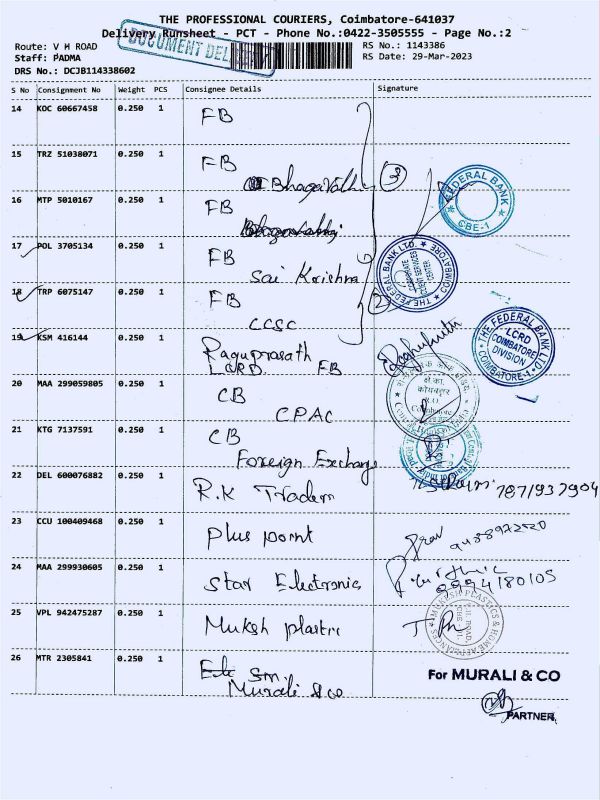 THE PROFESSIONAL COURIERS, Coimbatore-641037
Delivery Runsheet - PCT - Phone No.:0422-3505555 - Page No.:2
DOCUMENT DEL
Route: V H ROAD
RS No.: 1143386
Staff: PADMA
RS Date: 29-Mar-2023
DRS No.: DCJB114338602
S No Consignment No Weight PCS Consignee Details Signature
14 KOC 60667458 0.250 1 FB
15 TRZ 51038071 0.250 1 FB
Bhagavathi
3
16 MTP 5010167 0.250 1 FB
FEDERAL BANK
CBE-1
17 POL 3705134 0.250 1 FB
Sai Krishna
THE FEDERAL BANK LTD.
COIMBATORE
18 TRP 6075147 0.250 1 FB
2
CCSC
19 KSM 416144 0.250 1 Raguprasath
LCRD FB
THE FEDERAL BANK LTD
LCRD
COIMBATORE
DIVISION
COIMBATORE-1
20 MAA 299059805 0.250 1 CB
CPAC
21 KTG 7137591 0.250 1 CB
Foreign Exchange
22 DEL 600076882 0.250 1 R.K Traders
7871937904
23 CCU 100409468 0.250 1 Plus point
24 MAA 299930605 0.250 1 Star Electronics
9994180105
25 VPL 942475287 0.250 1 Muksh plastic
26 MTR 2305841 0.250 1 Sm
Murali & co
For MURALI & CO
PARTNER